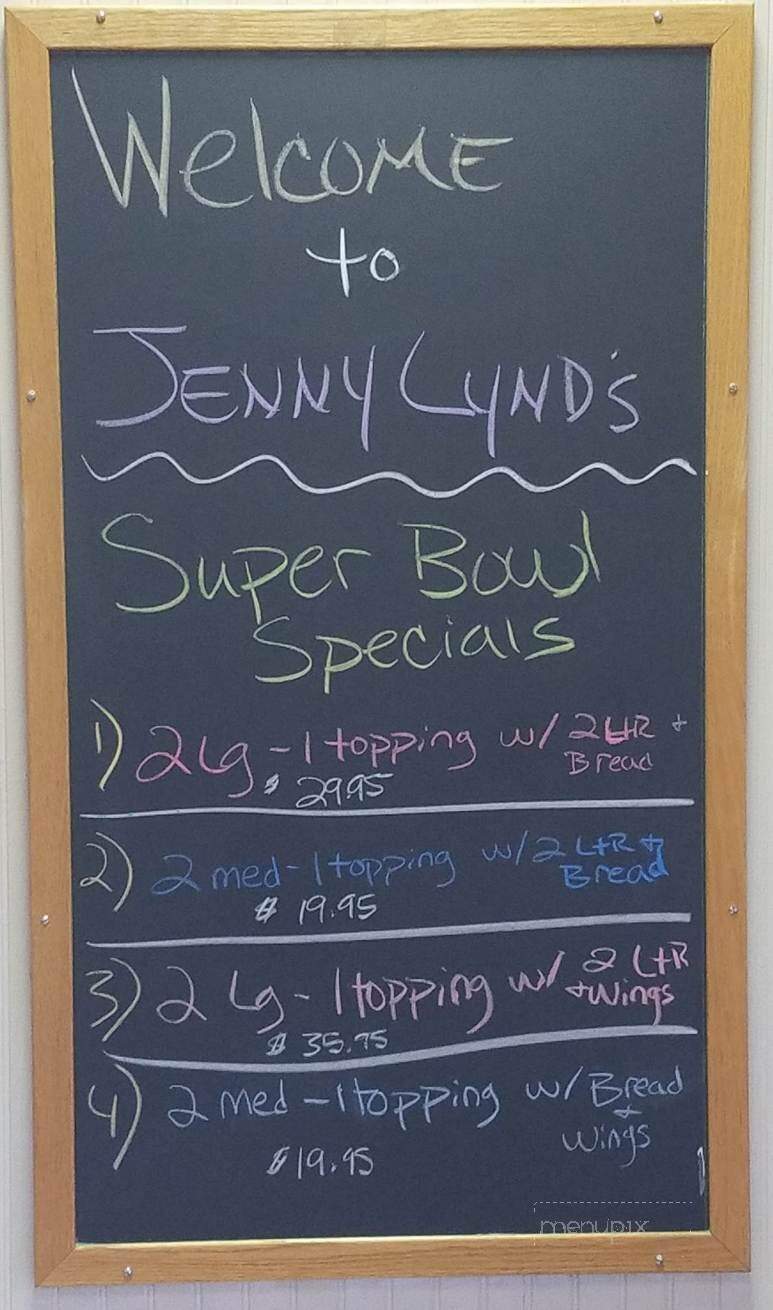 Welcome
to
Jenny Lynd's
Super Bowl
Specials
1) 2 Lg - 1 topping w/ 2 LtR +
Bread
$ 29.95
2) 2 med - 1 topping w/ 2 LtR +
Bread
$ 19.95
3) 2 Lg - 1 topping w/ 2 LtR
+ Wings
$ 35.95
4) 2 med - 1 topping w/ Bread
+
Wings
$ 19.95
menupix